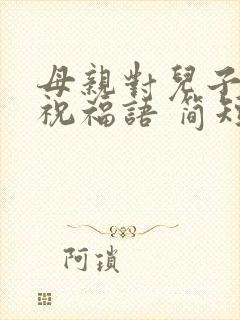 母親對兒子
祝福語 簡短
阿瑣